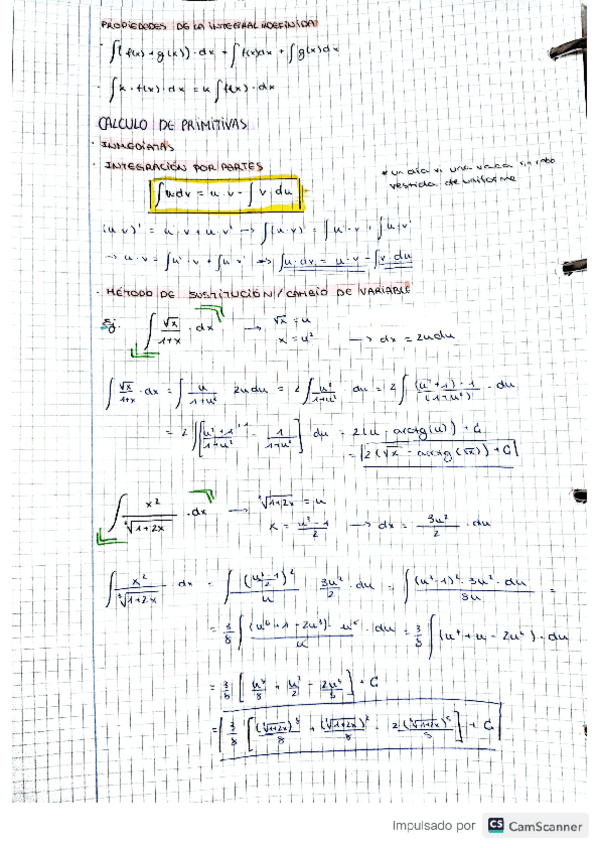 PROPIEDADES DE LA INTEGRAL INDEFINIDA
· ∫(f(x)+g(x))·dx = ∫f(x)dx + ∫g(x)dx
· ∫k·f(x)·dx = k∫f(x)·dx
CALCULO DE PRIMITIVAS
· INMEDIATAS
· INTEGRACIÓN POR PARTES
* un día vi una vaca
vestida de uniforme
∫u dv = u·v - ∫v·du
(u·v)' = u'·v + u·v' → ∫(u·v)' = ∫u'·v + ∫u·v'
→ u·v = ∫u'·v + ∫u·v' → ∫u·dv = u·v - ∫v·du
· MÉTODO DE SUSTITUCIÓN / CAMBIO DE VARIABLE
Ej: ∫ √x/(1+x) ·dx → √x = u
x = u² → dx = 2udu
∫ √x/(1+x) ·dx = ∫ u/(1+u²) 2udu = 2∫ u²/(1+u²) ·du = 2∫ ((u²+1)-1)/(1+u²) ·du
= 2∫[(u²+1)/(1+u²) - 1/(1+u²)] du = 2(u - arctg(u)) + C
= 2(√x - arctg(√x)) + C
∫ x²/∛(1+2x) ·dx → ∛(1+2x) = u
x = (u³-1)/2 → dx = 3u²/2 ·du
∫ x²/∛(1+2x) ·dx = ∫ ((u³-1)/2)²/u 3u²/2 ·du = ∫ (u³-1)²·3u²·du/8u =
= 3/8 ∫ (u⁶+1-2u³)·u²/u ·du = 3/8 ∫(u⁷+u-2u⁴)·du
= 3/8 [u⁸/8 + u²/2 - 2u⁵/5] + C